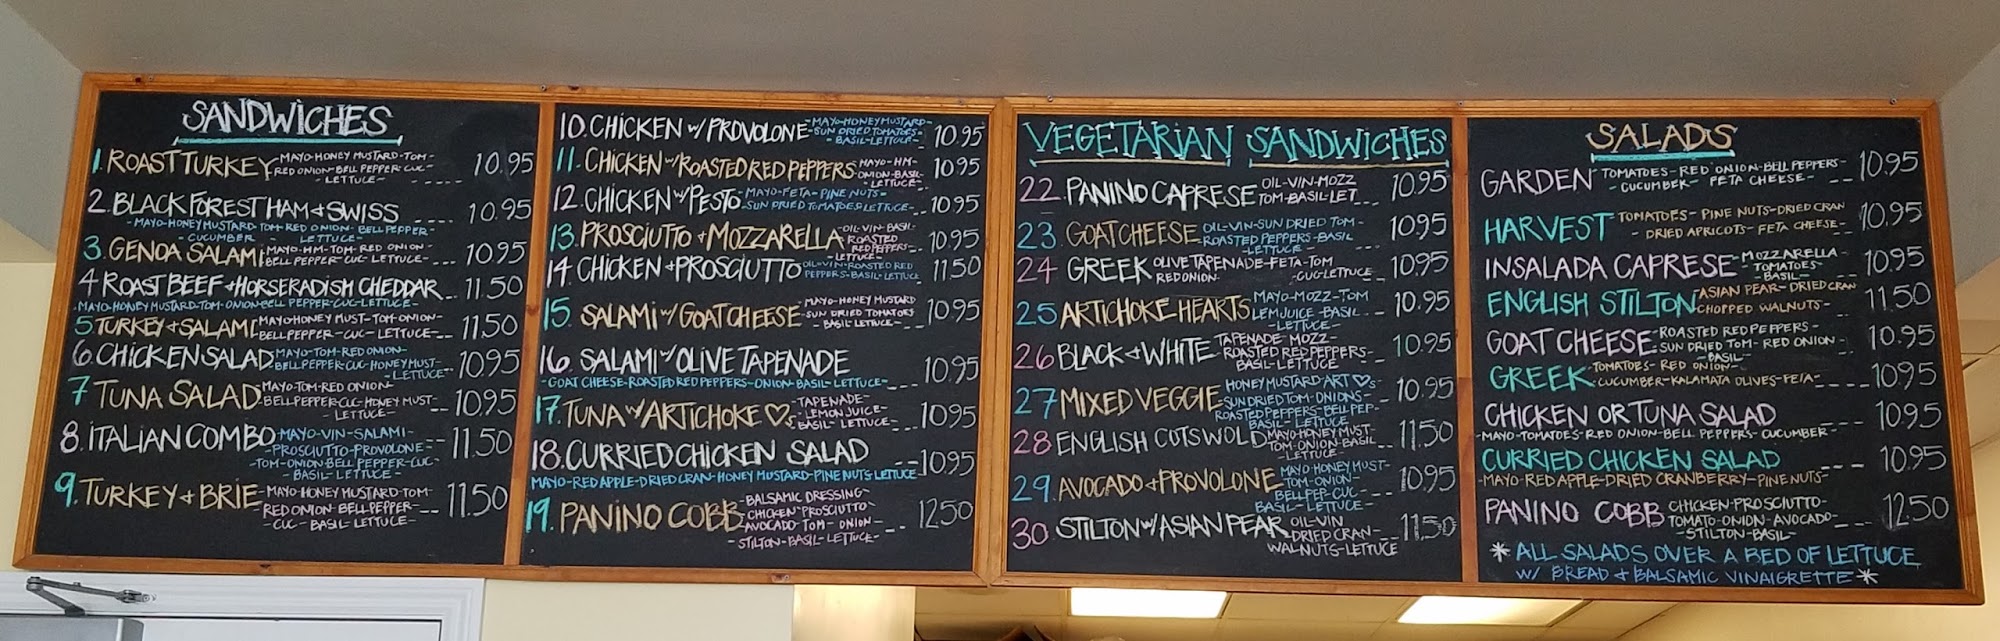 SANDWICHES
1. ROAST TURKEY -MAYO-HONEY MUSTARD-TOM-
RED ONION-BELL PEPPER-CUC-
-LETTUCE- ---- 10.95
2. BLACK FOREST HAM + SWISS ---- 10.95
-MAYO-HONEY MUSTARD-TOM-RED ONION-BELL PEPPER-
-CUCUMBER - LETTUCE-
3. GENOA SALAMI -MAYO-HM-TOM-RED ONION-
BELL PEPPER-CUC-LETTUCE- 10.95
4 ROAST BEEF + HORSERADISH CHEDDAR -- 11.50
-MAYO-HONEY MUSTARD-TOM-ONION-BELL PEPPER-CUC-LETTUCE-
5 TURKEY + SALAMI -MAYO-HONEY MUST-TOM-ONION-
BELL PEPPER-CUC-LETTUCE- 11.50
6. CHICKEN SALAD -MAYO-TOM-RED ONION-
BELL PEPPER-CUC-HONEY MUST-
-LETTUCE- 10.95
7 TUNA SALAD -MAYO-TOM-RED ONION-
BELL PEPPER-CUC-HONEY MUST-
-LETTUCE- -- 10.95
8. ITALIAN COMBO -MAYO-VIN-SALAMI-
-PROSCIUTTO-PROVOLONE-
-TOM-ONION-BELL PEPPER-CUC-
BASIL-LETTUCE- -- 11.50
9. TURKEY + BRIE -MAYO-HONEY MUSTARD-TOM-
RED ONION-BELL PEPPER-
-CUC-BASIL-LETTUCE- -- 11.50
10. CHICKEN w/ PROVOLONE -MAYO-HONEY MUSTARD-
-SUN DRIED TOMATOES-
BASIL-LETTUCE- 10.95
11. CHICKEN w/ ROASTED RED PEPPERS -MAYO-HM-
ONION-BASIL-
-LETTUCE- 10.95
12. CHICKEN w/ PESTO -MAYO-FETA-PINE NUTS-
SUN DRIED TOMATOES LETTUCE- -- 10.95
13. PROSCIUTTO + MOZZARELLA -OIL-VIN-BASIL-
ROASTED
RED PEPPERS-
-LETTUCE- 10.95
14 CHICKEN + PROSCIUTTO OIL-VIN-ROASTED RED
PEPPERS-BASIL-LETTUCE 11.50
15. SALAMI w/ GOAT CHEESE -MAYO-HONEY MUSTARD
SUN DRIED TOMATOES
-BASIL-LETTUCE- 10.95
16. SALAMI w/ OLIVE TAPENADE
-GOAT CHEESE-ROASTED RED PEPPERS-ONION-BASIL-LETTUCE- --- 10.95
17. TUNA w/ ARTICHOKE ♡s -TAPENADE-
-LEMON JUICE-
BASIL-LETTUCE- -- 10.95
18. CURRIED CHICKEN SALAD --- 10.95
MAYO-RED APPLE-DRIED CRAN-HONEY MUSTARD-PINE NUTS LETTUCE
19. PANINO COBB -BALSAMIC DRESSING-
CHICKEN-PROSCIUTTO
AVOCADO-TOM-ONION-
-STILTON-BASIL-LETTUCE- -- 12.50
VEGETARIAN SANDWICHES
22. PANINO CAPRESE OIL-VIN-MOZZ
TOM-BASIL-LET-- 10.95
23 GOAT CHEESE OIL-VIN-SUN DRIED TOM-
ROASTED PEPPERS-BASIL
-LETTUCE- 10.95
24 GREEK OLIVE TAPENADE-FETA-TOM
RED ONION -CUC-LETTUCE-- 10.95
25 ARTICHOKE HEARTS MAYO-MOZZ-TOM
LEM JUICE-BASIL-
-LETTUCE- 10.95
26 BLACK + WHITE TAPENADE-MOZZ-
ROASTED RED PEPPERS-
BASIL-LETTUCE 10.95
27 MIXED VEGGIE HONEY MUSTARD-ART ♡s-
SUN DRIED TOM-ONIONS-
ROASTED PEPPERS-BELL PEP-
BASIL-LETTUCE- 10.95
28 ENGLISH COTSWOLD MAYO-HONEY MUST-
TOM-ONION-BASIL -- 11.50
29. AVOCADO + PROVOLONE MAYO-HONEY MUST-
TOM-ONION-
BELL PEP-CUC-
BASIL-LETTUCE- -- 10.95
30. STILTON w/ ASIAN PEAR OIL-VIN
DRIED CRAN-
WALNUTS-LETTUCE -- 11.50
SALADS
GARDEN -TOMATOES-RED ONION-BELL PEPPERS-
-CUCUMBER- FETA CHEESE- -- 10.95
HARVEST -TOMATOES-PINE NUTS-DRIED CRAN
-DRIED APRICOTS-FETA CHEESE-- 10.95
INSALADA CAPRESE -MOZZARELLA-
-TOMATOES-
-BASIL- -- 10.95
ENGLISH STILTON ASIAN PEAR-DRIED CRAN
CHOPPED WALNUTS- -- 11.50
GOAT CHEESE -ROASTED RED PEPPERS-
SUN DRIED TOM-RED ONION-
-BASIL- -- 10.95
GREEK -TOMATOES-RED ONION-
-CUCUMBER-KALAMATA OLIVES-FETA- --- 10.95
CHICKEN OR TUNA SALAD 10.95
-MAYO-TOMATOES-RED ONION-BELL PEPPERS-CUCUMBER-
CURRIED CHICKEN SALAD --- 10.95
-MAYO-RED APPLE-DRIED CRANBERRY-PINE NUTS-
PANINO COBB CHICKEN-PROSCIUTTO-
TOMATO-ONION-AVOCADO-
-STILTON-BASIL- --- 12.50
* ALL SALADS OVER A BED OF LETTUCE
w/ BREAD + BALSAMIC VINAIGRETTE *